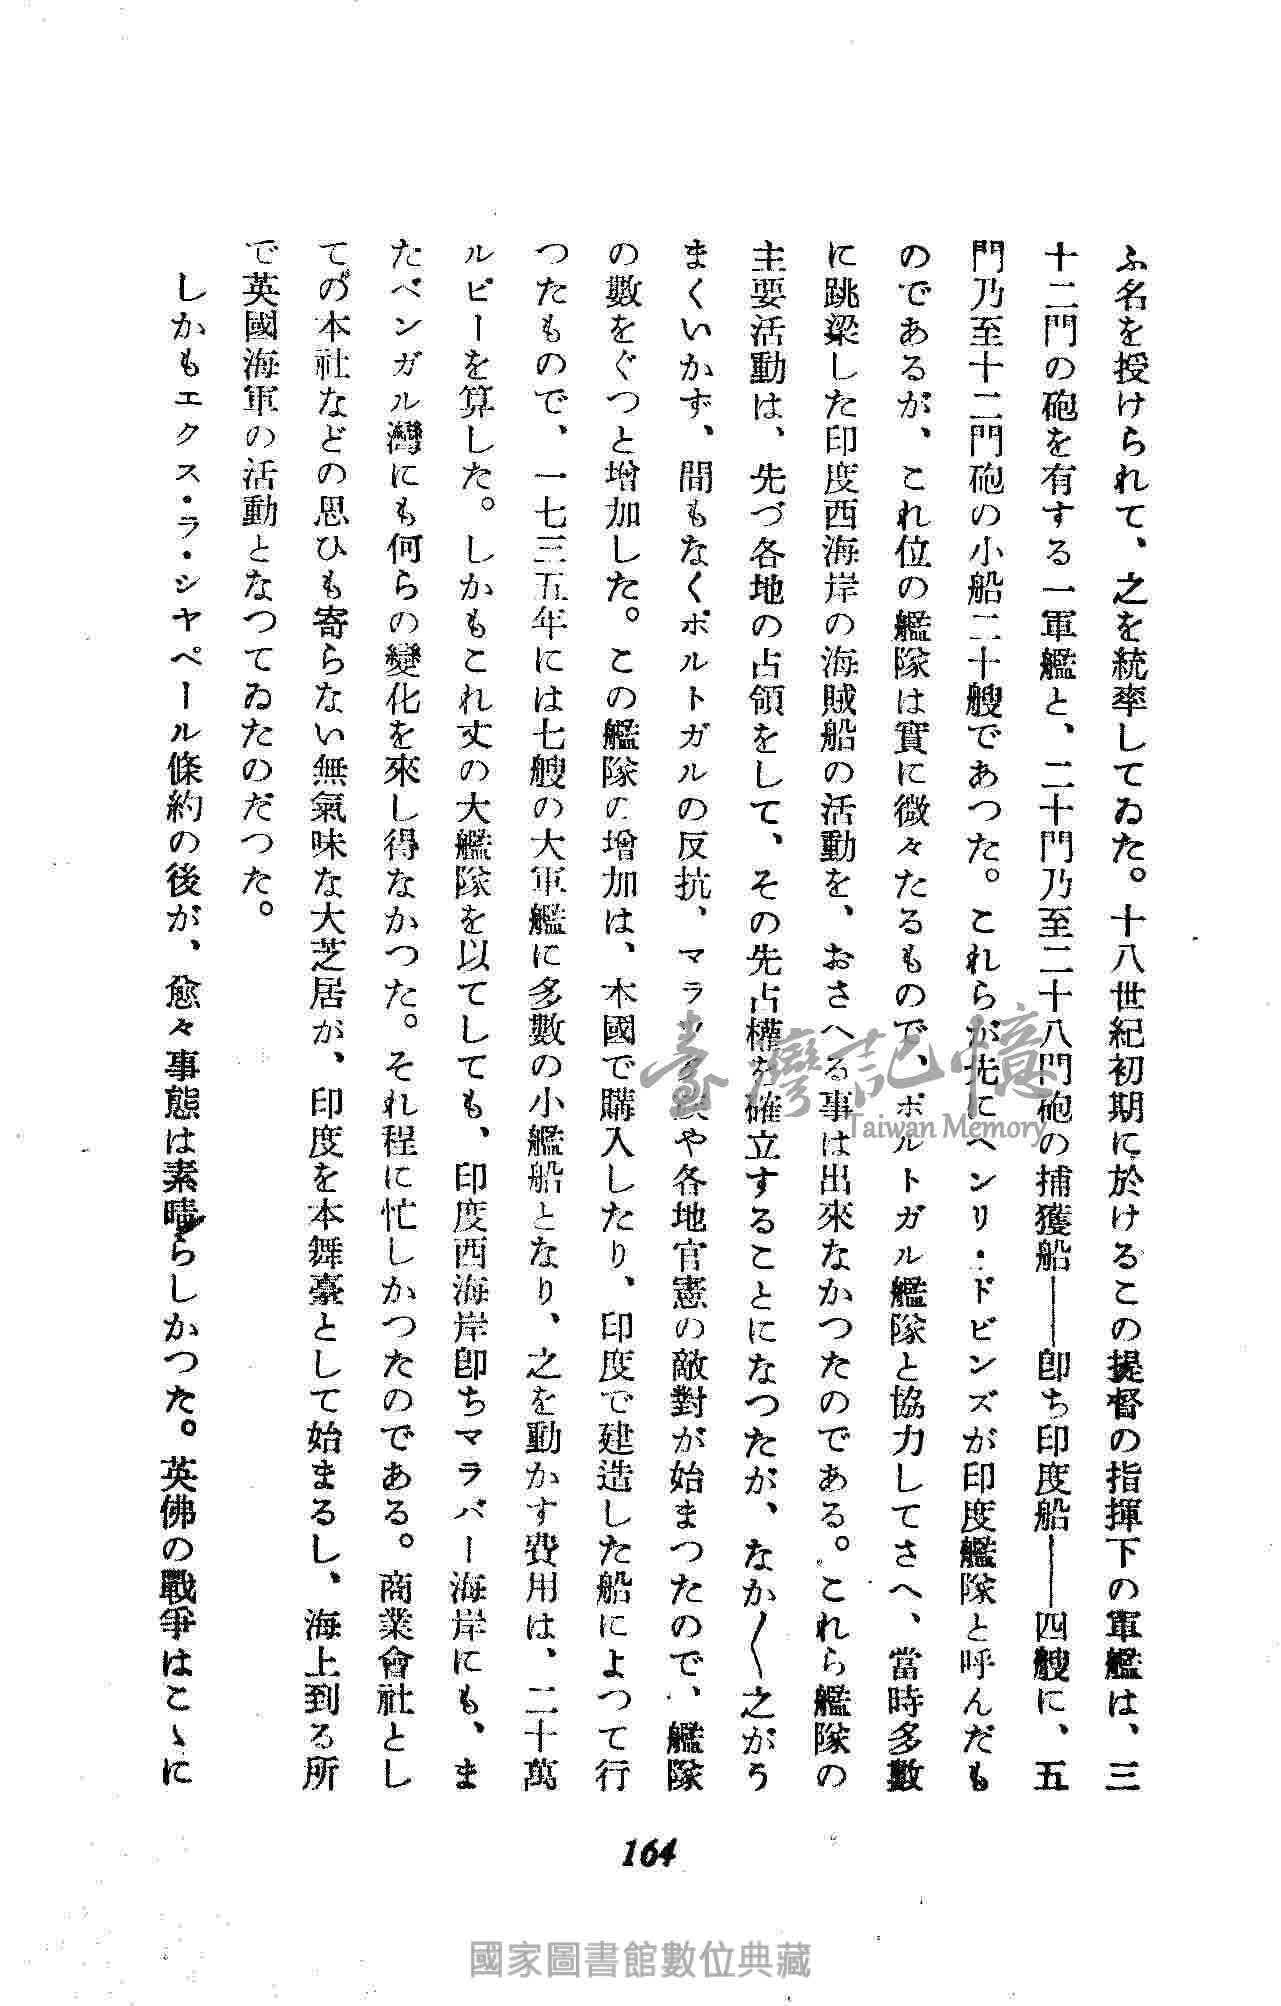 ふ名を授けられて、之を統率してゐた。十八世紀初期に於けるこの提督の指揮下の軍艦は、三
十二門の砲を有する一軍艦と、二十門乃至二十八門砲の捕獲船――卽ち印度船――四艘に、五
門乃至十二門砲の小船二十艘であつた。これらが先にヘンリ・ドビンズが印度艦隊と呼んだも
のであるが、これ位の艦隊は實に微々たるもので、ポルトガル艦隊と協力してさへ、當時多數
に跳梁した印度西海岸の海賊船の活動を、おさへる事は出來なかつたのである。これら艦隊の
主要活動は、先づ各地の占領をして、その先占權を確立することになつたが、なか〱之がう
まくいかず、間もなくポルトガルの反抗、マラ や各地官憲の敵對が始まつたので、艦隊
の數をぐつと增加した。この艦隊の增加は、本國で購入したり、印度で建造した船によつて行
つたもので、一七三五年には七艘の大軍艦に多數の小艦船となり、之を動かす費用は、二十萬
ルピーを算した。しかもこれ丈の大艦隊を以てしても、印度西海岸卽ちマラバー海岸にも、ま
たベンガル灣にも何らの變化を來し得なかつた。それ程に忙しかつたのである。商業會社とし
ての本社などの思ひも寄らない無氣味な大芝居が、印度を本舞臺として始まるし、海上到る所
で英國海軍の活動となつてゐたのだつた。
しかもエクス・ラ・シヤペール條約の後が、愈々事態は素晴らしかつた。英佛の戰爭はこゝに
164
臺灣記憶
Taiwan Memory
國家圖書館數位典藏